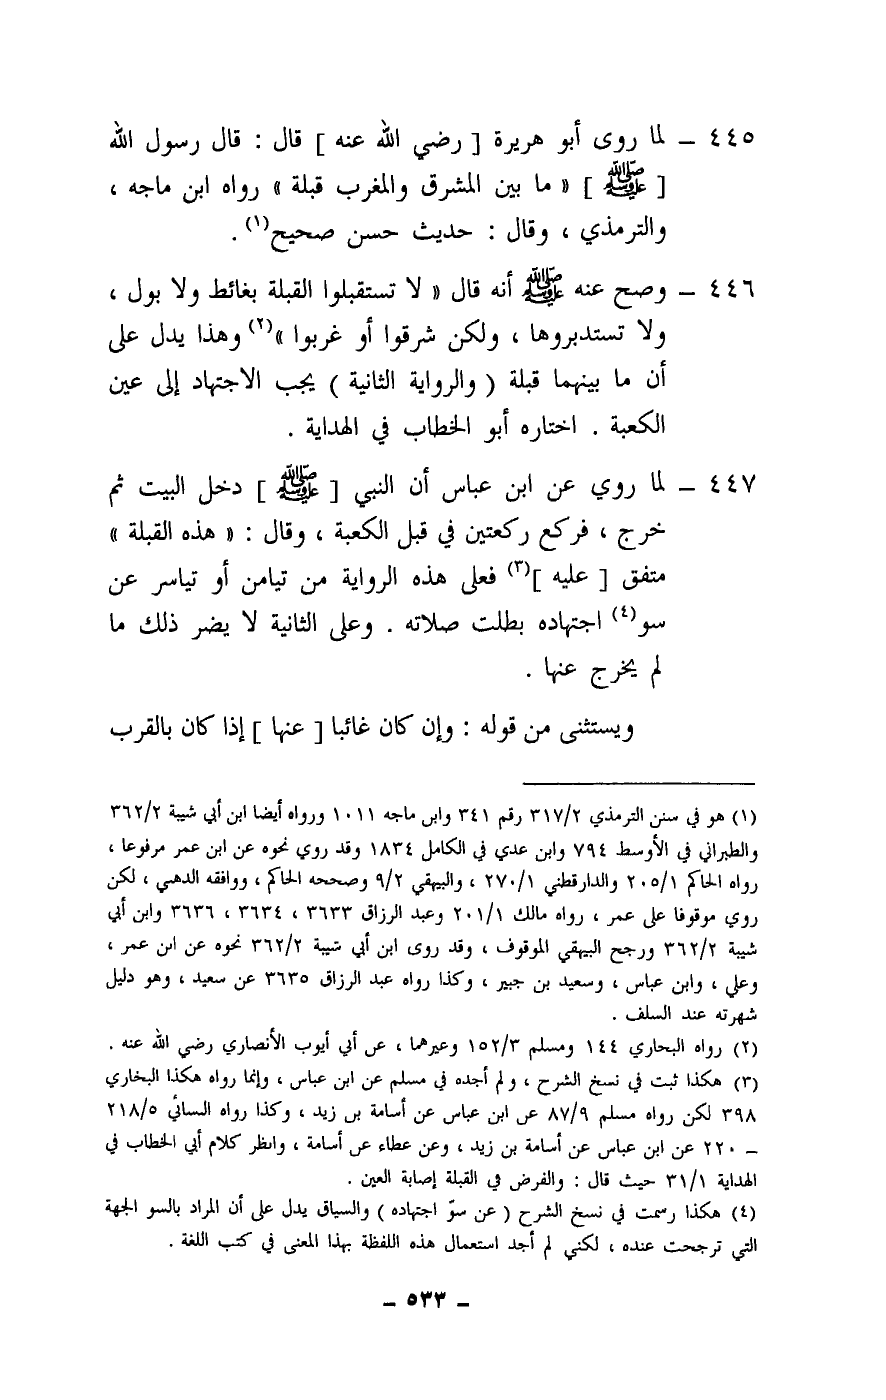 ٤٤٥ – لما روى أبو هريرة [ رضي الله عنه ] قال : قال رسول الله
[ ﷺ ] « ما بين المشرق والمغرب قبلة » رواه ابن ماجه ،
والترمذي ، وقال : حديث حسن صحيح(١) .
٤٤٦ – وصح عنه ﷺ أنه قال « لا تستقبلوا القبلة بغائط ولا بول ،
ولا تستدبروها ، ولكن شرقوا أو غربوا »(٢) وهذا يدل على
أن ما بينهما قبلة ( والرواية الثانية ) يجب الاجتهاد إلى عين
الكعبة . اختاره أبو الخطاب في الهداية .
٤٤٧ – لما روي عن ابن عباس أن النبي [ ﷺ ] دخل البيت ثم
خرج ، فركع ركعتين في قبل الكعبة ، وقال : « هذه القبلة »
متفق [ عليه ](٣) فعلى هذه الرواية من تيامن أو تياسر عن
سو(٤) اجتهاده بطلت صلاته . وعلى الثانية لا يضر ذلك ما
لم يخرج عنها .
ويستثنى من قوله : وإن كان غائبا [ عنها ] إذا كان بالقرب
(١) هو في سنن الترمذي ٣١٧/٢ رقم ٣٤١ وابن ماجه ١٠١١ ورواه أيضا ابن أبي شيبة ٣٦٢/٢
والطبراني في الأوسط ٧٩٤ وابن عدي في الكامل ١٨٣٤ وقد روي نحوه عن ابن عمر مرفوعا ،
رواه الحاكم ٢٠٥/١ والدارقطني ٢٧٠/١ ، والبيهقي ٩/٢ وصححه الحاكم ، ووافقه الذهبي ، لكن
روي موقوفا على عمر ، رواه مالك ٢٠١/١ وعبد الرزاق ٣٦٣٣ ، ٣٦٣٤ ، ٣٦٣٦ وابن أبي
شيبة ٣٦٢/٢ ورجح البيهقي الموقوف ، وقد روى ابن أبي شيبة ٣٦٢/٢ نحوه عن ابن عمر ،
وعلي ، وابن عباس ، وسعيد بن جبير ، وكذا رواه عبد الرزاق ٣٦٣٥ عن سعيد ، وهو دليل
شهرته عند السلف .
(٢) رواه البخاري ١٤٤ ومسلم ١٥٢/٣ وغيرهما ، عن أبي أيوب الأنصاري رضي الله عنه .
(٣) هكذا ثبت في نسخ الشرح ، ولم أجده في مسلم عن ابن عباس ، وإنما رواه هكذا البخاري
٣٩٨ لكن رواه مسلم ٨٧/٩ عن ابن عباس عن أسامة بن زيد ، وكذا رواه النسائي ٢١٨/٥
– ٢٢٠ عن ابن عباس عن أسامة بن زيد ، وعن عطاء عن أسامة ، وانظر كلام أبي الخطاب في
الهداية ٣١/١ حيث قال : والفرض في القبلة إصابة العين .
(٤) هكذا رسمت في نسخ الشرح ( عن سوّ اجتهاده ) والسياق يدل على أن المراد بالسو الجهة
التي ترجحت عنده ، لكني لم أجد استعمال هذه اللفظة بهذا المعنى في كتب اللغة .
– ٥٣٣ –